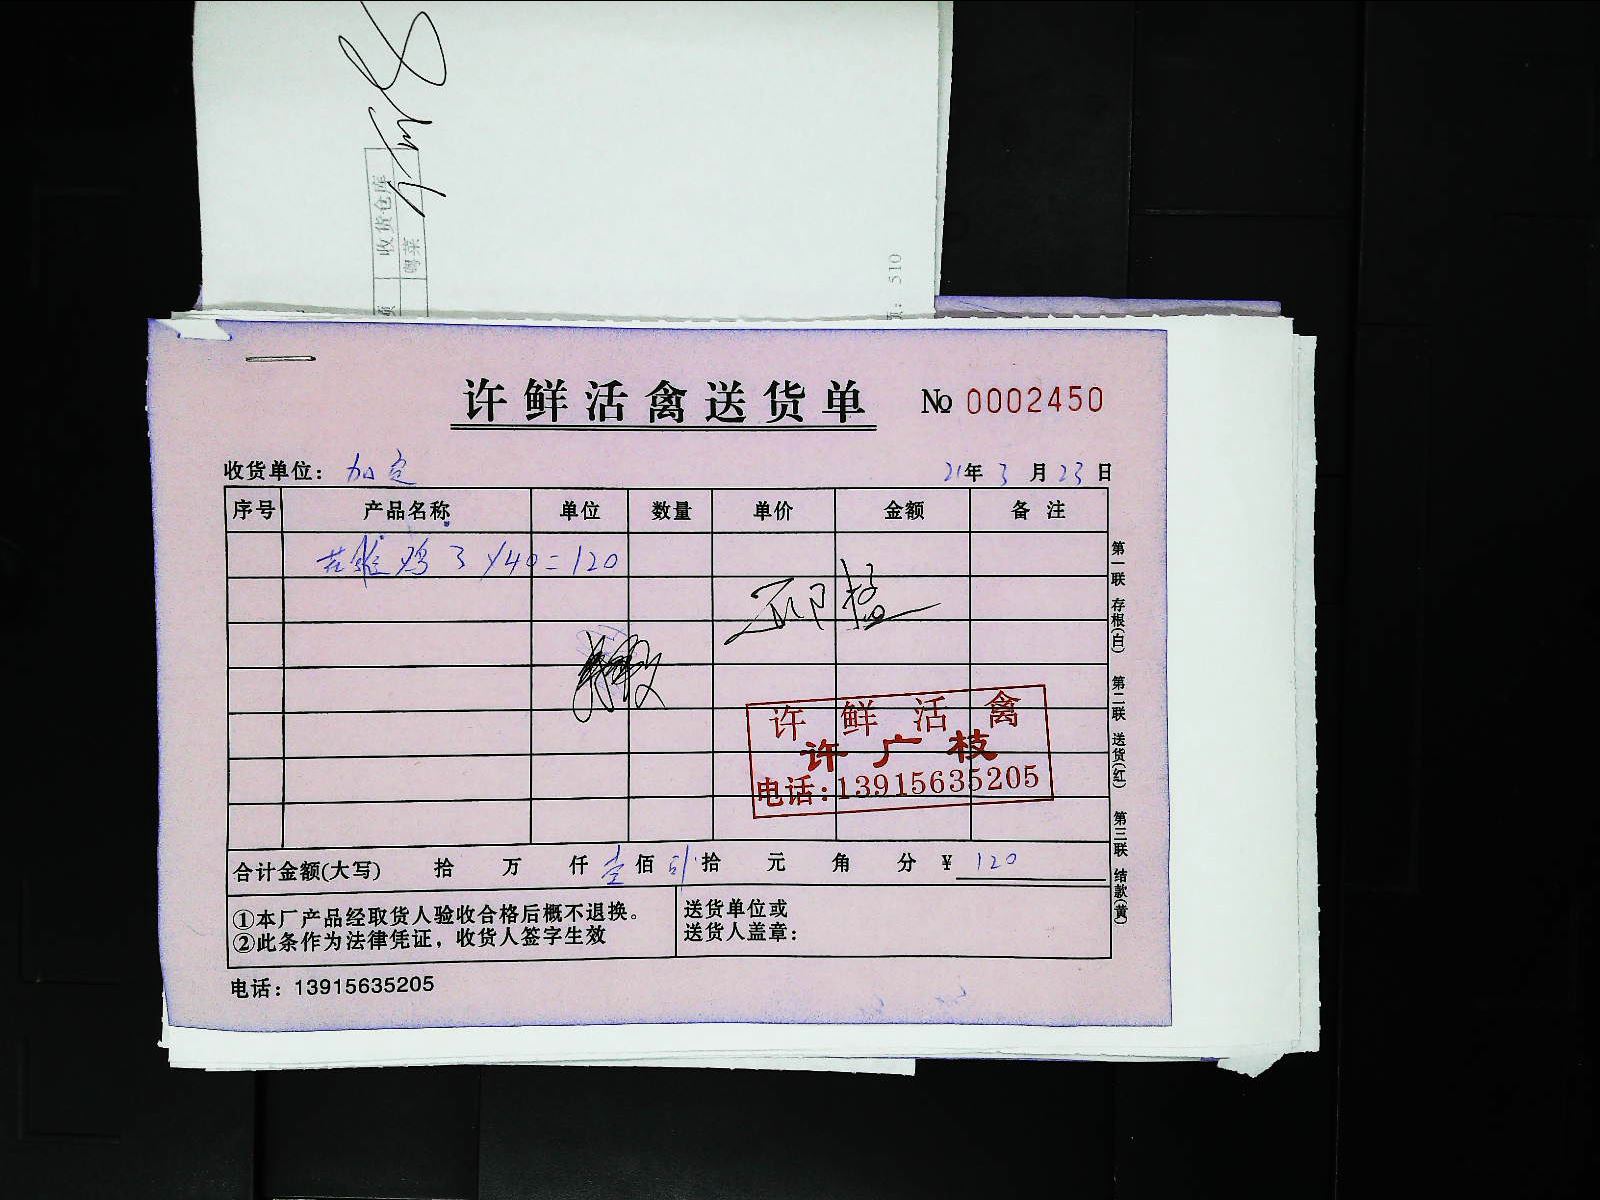 收货仓库
粤菜
510
许鲜活禽送货单 № 0002450
收货单位： 加定 21年 3 月 23 日
序号 产品名称 单位 数量 单价 金额 备注
鸡 3 ×40=120
邱猛
许鲜活禽
许广枝
电话:13915635205
合计金额(大写) 拾 万 仟 壹 佰 拾 元 角 分 ¥ 120
①本厂产品经取货人验收合格后概不退换。
②此条作为法律凭证，收货人签字生效
送货单位或
送货人盖章：
电话：13915635205
第一联 存根(白) 第二联 送货(红) 第三联 结款(黄)